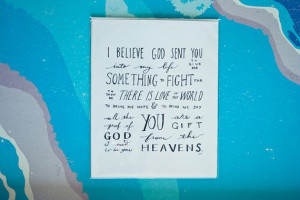 I BELIEVE GOD SENT YOU
into my life TO GIVE ME
SOMETHING TO FIGHT FOR
THERE IS LOVE IN THIS WORLD
TO BRING ME HOPE & TO BRING ME JOY
all the proof of YOU ARE A
GOD I need GIFT
is in you from the
HEAVENS.